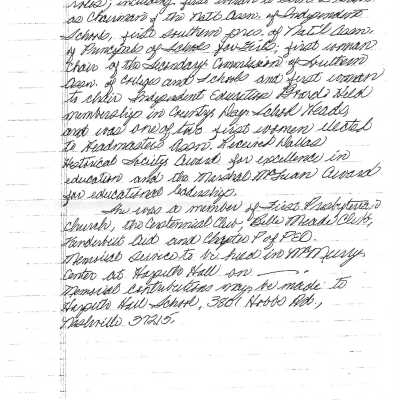 roles, including first woman to
as Chairman of the Nat'l Assn. of Independent
Schools, first southern pres. of Nat'l Assn.
of Principals of Schools for Girls, first woman
chair of the Secondary Commission of Southern
Assn. of Colleges and Schools and first woman
to chair Independent Education Board. Held
membership in Country Day School Heads,
and was one of two first women elected
to Headmasters Assn. Received Dallas
Historical Society Award for excellence in
education and the Marshal McLuan Award
for educational leadership.
She was a member of First Presbyterian
church, the Centennial Club, Belle Meade Club,
Vanderbilt Aid and Chapter P of PEO.
Memorial service to be held in McMurry
Center at Harpeth Hall on —.
Memorial contributions may be made to
Harpeth Hall School, 3801 Hobbs Rd.,
Nashville 37215.